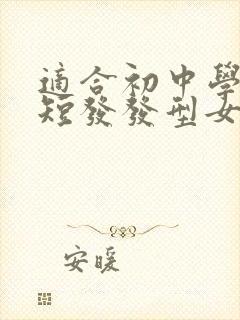 適合初中學
短發發型女
安暖